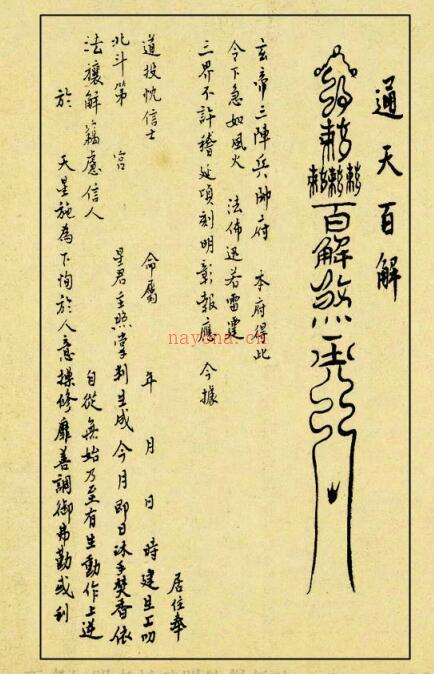 通天百解
敕
敕敕敕
百解煞
玄帝三陣兵帥府 本府得此
令下急如風火 法佈迅若雷霆
三界不許稽延頃刻明彰報應 今據
居住奉
道投忱信士 命屬 年 月 日 時建生上叨
北斗第 宮 星君主照掌判生成今月即日沐手焚香依
法禳解 慮信人 自從無始乃至有生動作上逆
於 天星施為下恂於人意操修靡善調御弗勤或
nayona.cn